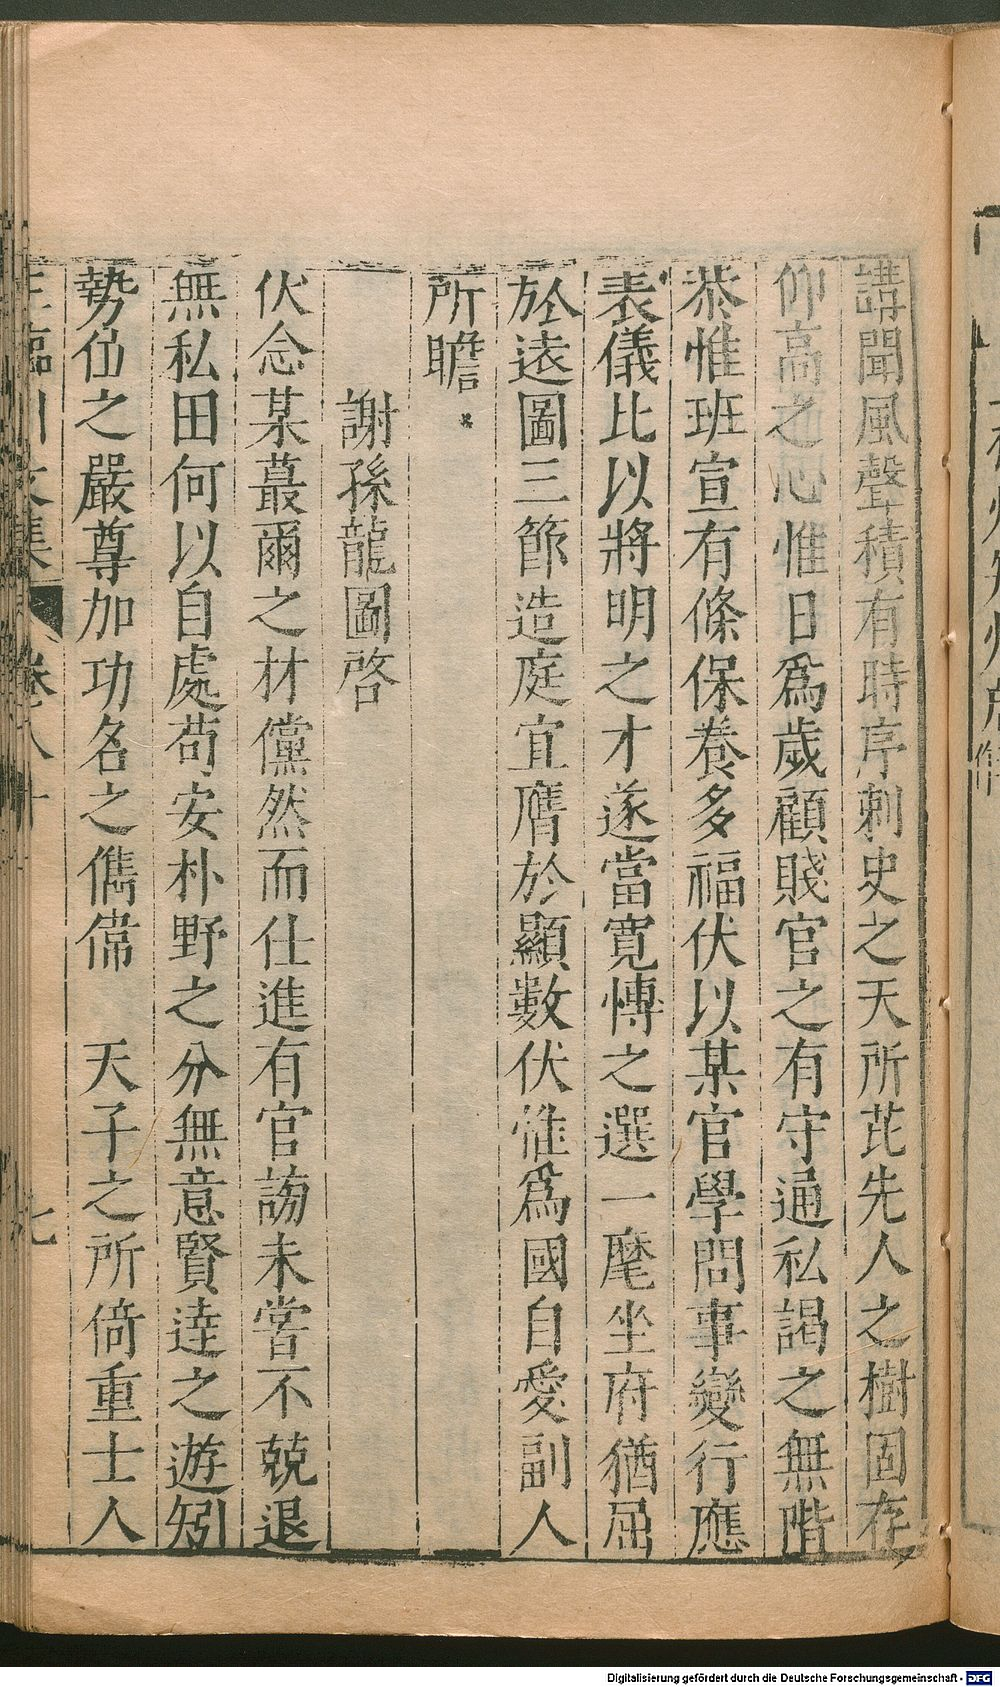 講聞風聲積有時序刺史之天所芘先人之樹固存
仰高之心惟日爲歲顧賤官之有守通私謁之無階
恭惟班宣有條保養多福伏以某官學問事變行應
表儀比以將明之才遂當寬慱之選一麾坐府猶屈
於逺圖三節造庭宜膺於顯數伏惟爲國自愛副人
所瞻
謝孫龍圖啓
伏念某蕞爾之材儻然而仕進有官謗未嘗不兢退
無私田何以自處苟安朴野之分無意賢逹之遊矧
勢位之嚴尊加功名之儁偉 天子之所倚重士人
王臨川文集 卷八十 七
Digitalisierung gefördert durch die Deutsche Forschungsgemeinschaft - DFG